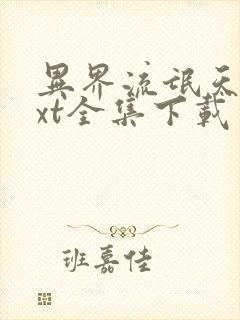 異界流氓天
xt全集下載
班嘉佳